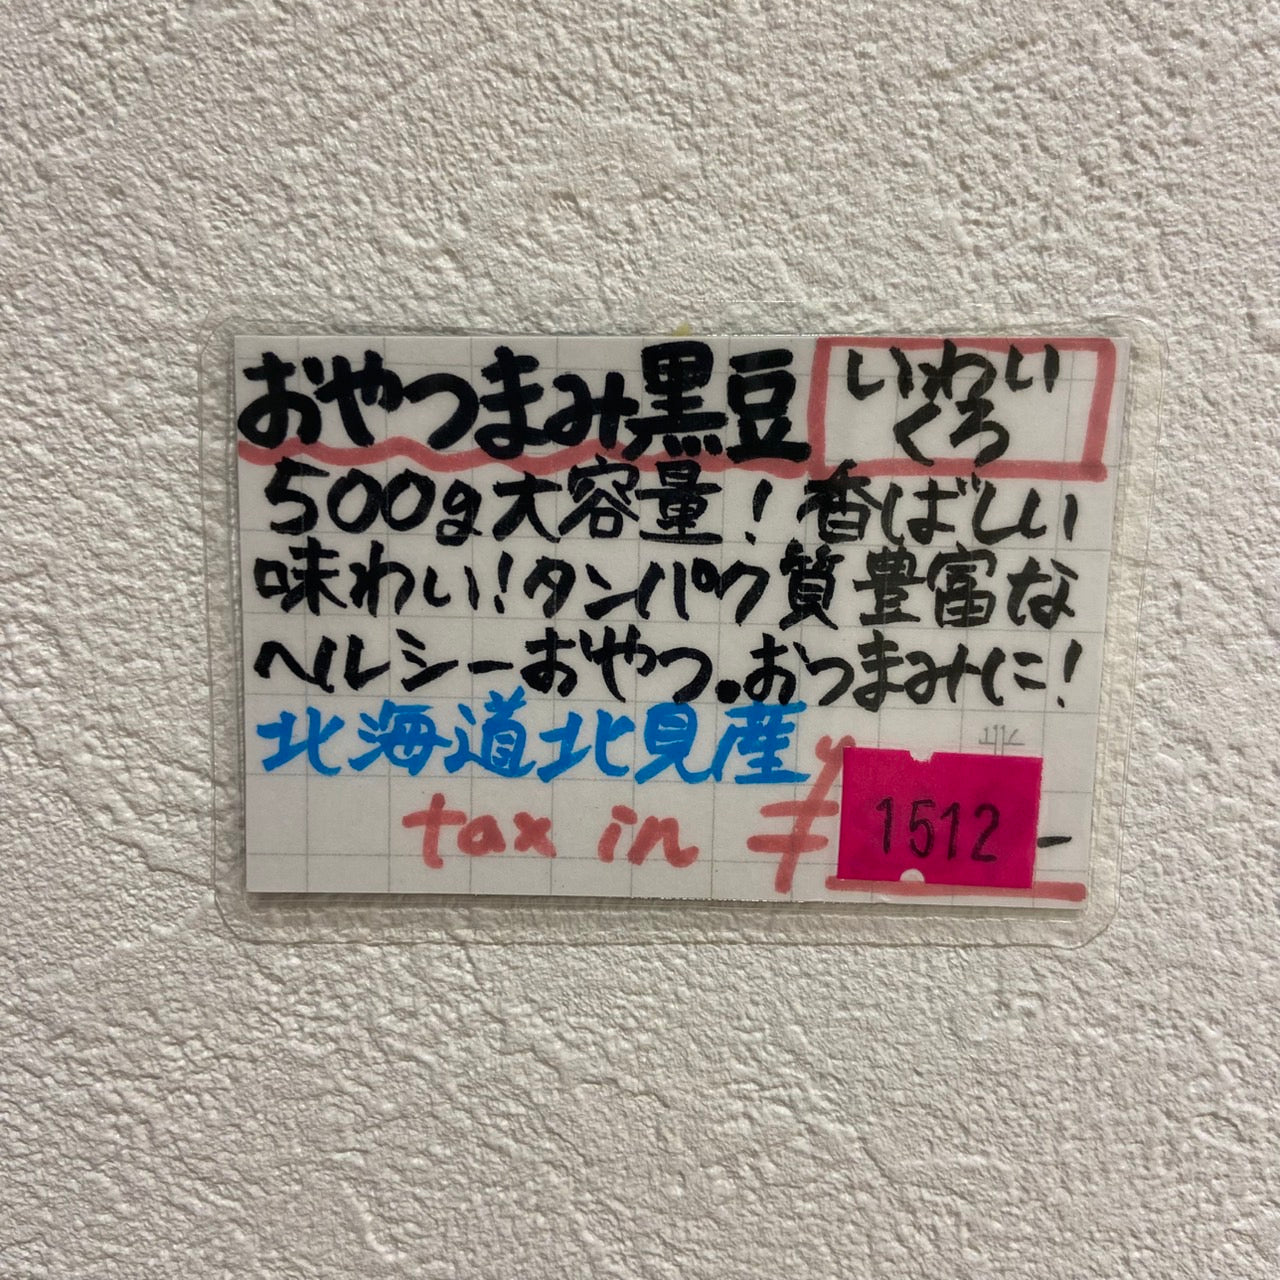 おやつまみ黒豆
いわい
くろ
500g大容量！香ばしい
味わい！タンパク質豊富な
ヘルシーおやつ。おつまみに！
北海道北見産
tax in ¥1512-